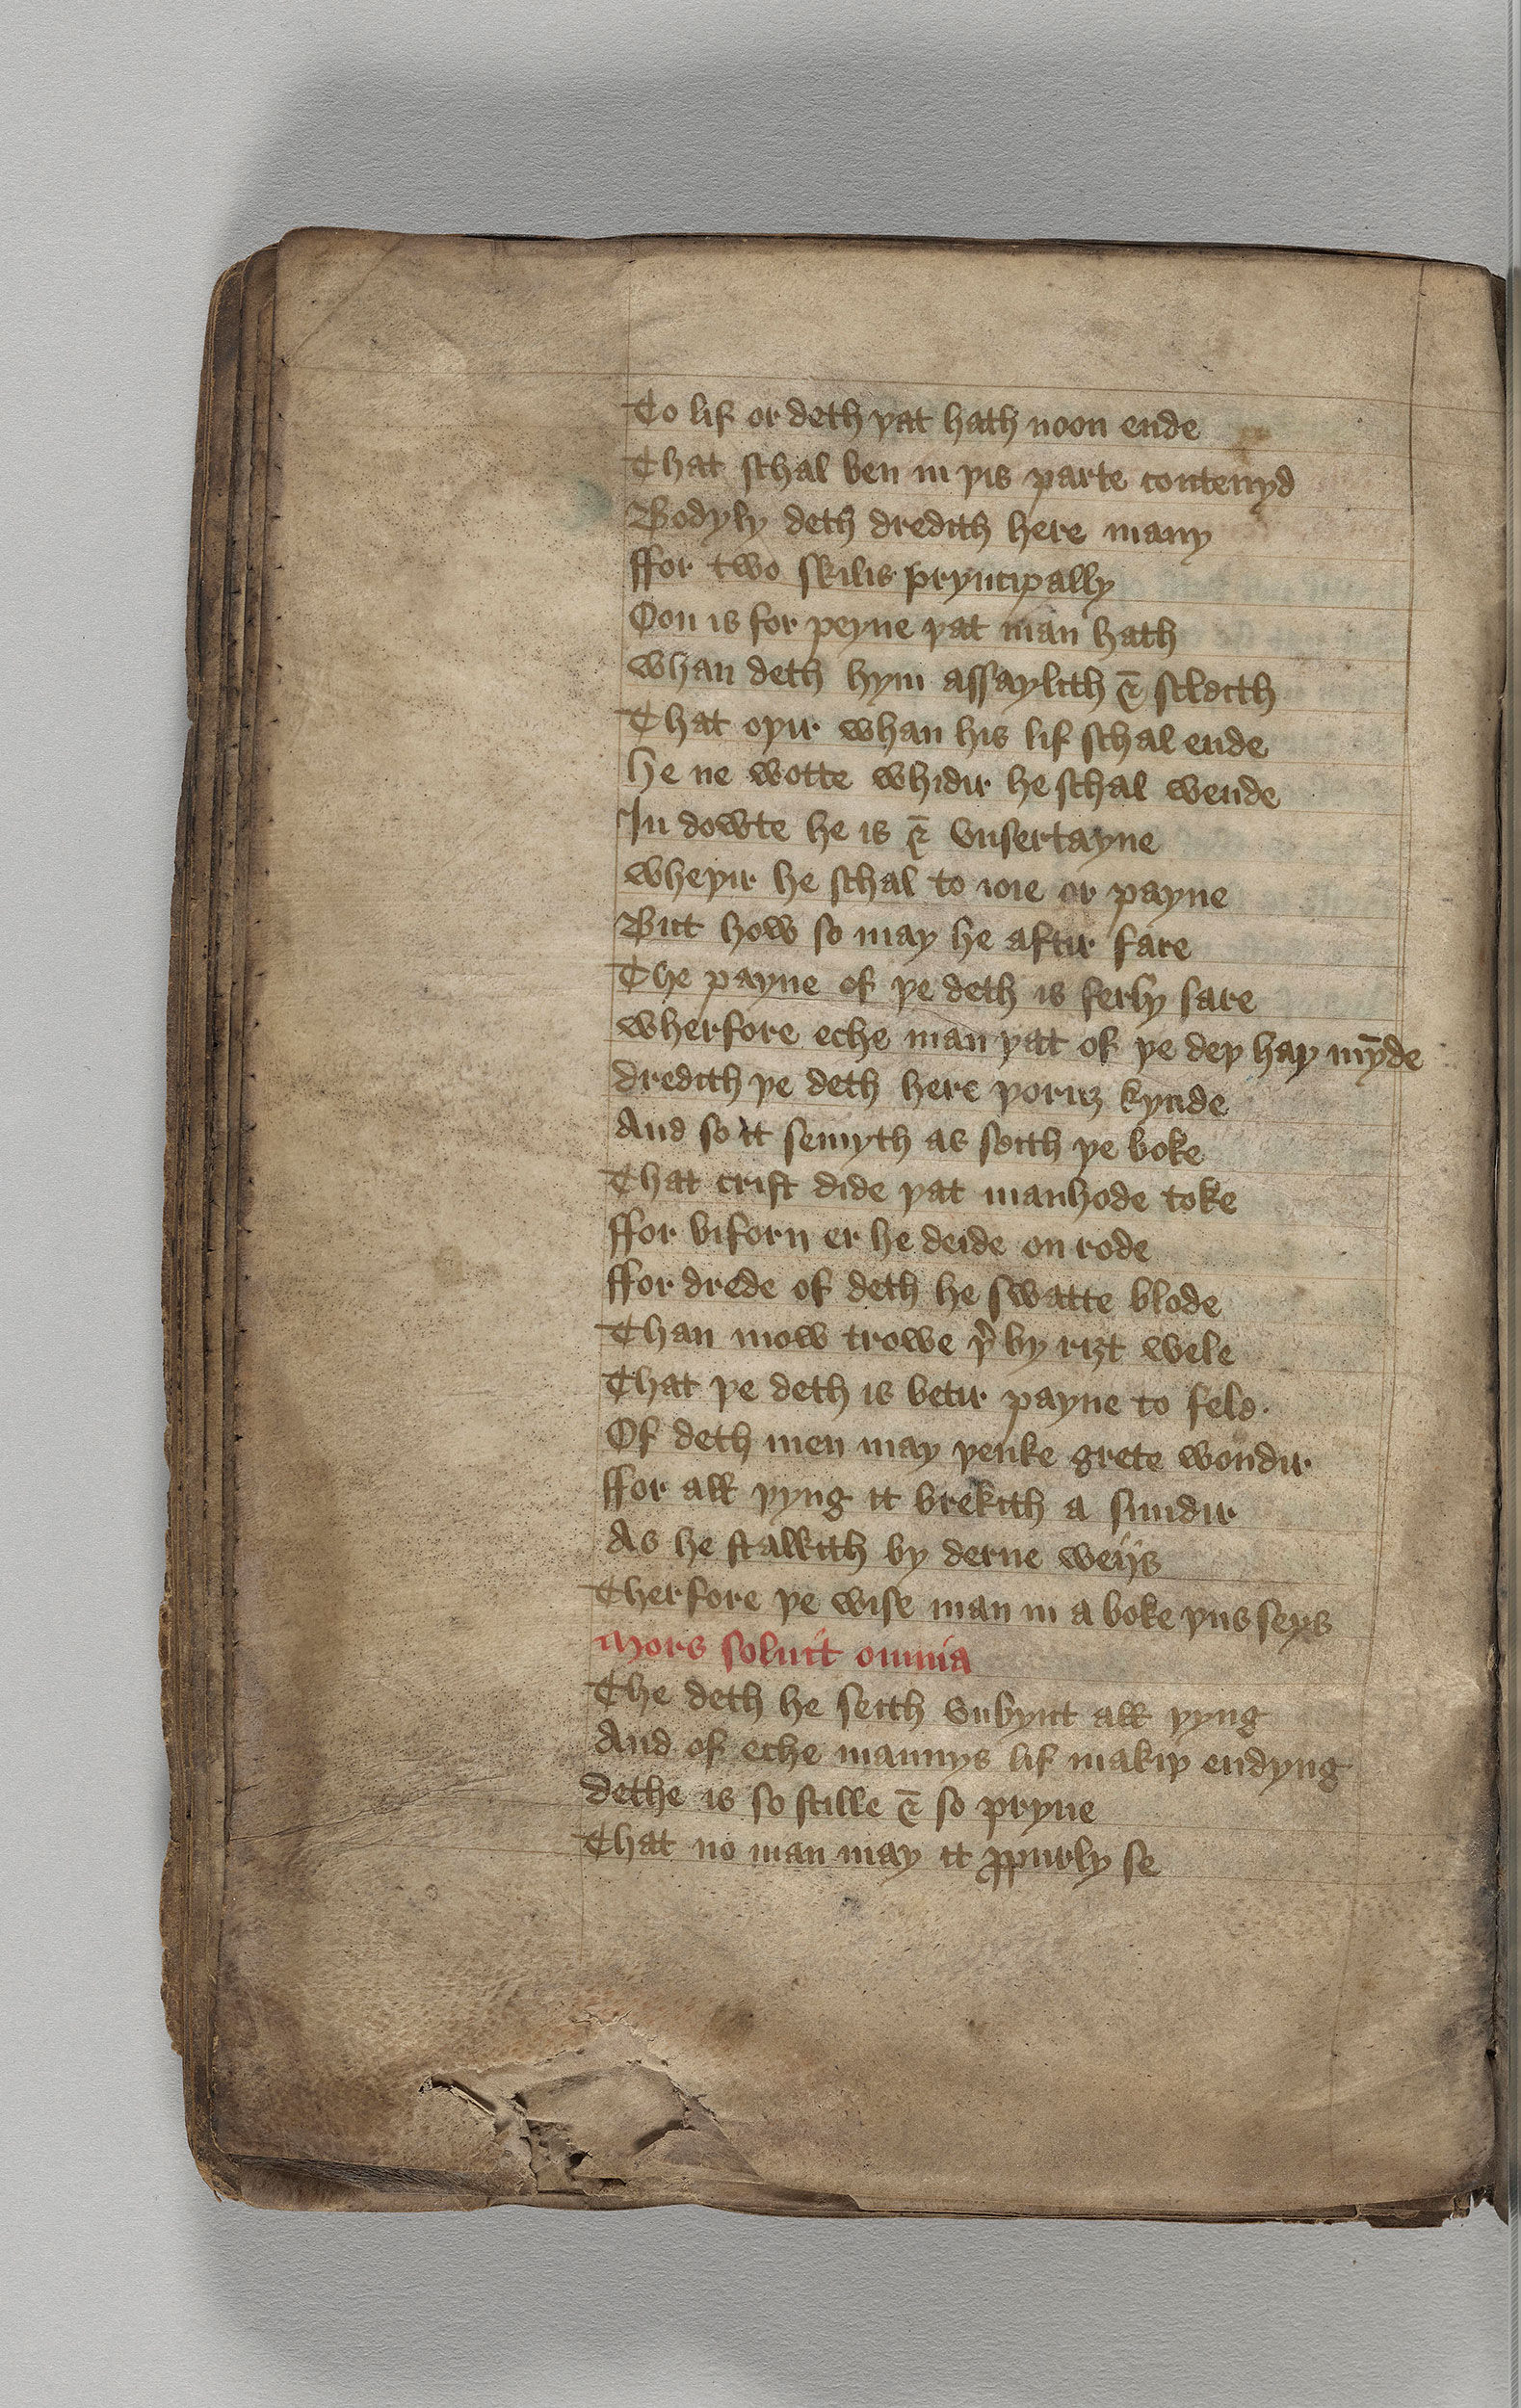 To lif or deth þat hath noon ende
That schal ben in þis parte contenyd
Bodyly deth dredith here many
ffor two skilis pryncipally
Oon is for peyne þat man hath
whan deth hym assaylith &
That oþir whan his lif schal ende
He ne wotte whidir he schal wende
In dowte he is & vnsertayne
wheþir he schal to ioie or payne
But how so may he aftir fare
The payne of þe deth is ferly sare
wherfore eche man þat of þe deþ haþ mȳde
dredith þe deth here þoruȝ kynde
And so it semyth as seith þe boke
That crist dide þat manhode toke
ffor biforn er he deide on rode
ffor drede of deth he swatte blode
Than mow trowe þ̾ by riȝt wele
That þe deth is betir payne to fele
Of deth men may þenke grete wondir
ffor all þyng it brekith a sundir
As he stalkith by derne weijs
Therfore þe wise man in a boke þus seys
Mors soluit omnia
The deth he seith vnbynt all þyng
And of eche mannys lif makiþ endyng
dethe is so stille & so pryue
That no man may it ꝓpurly se